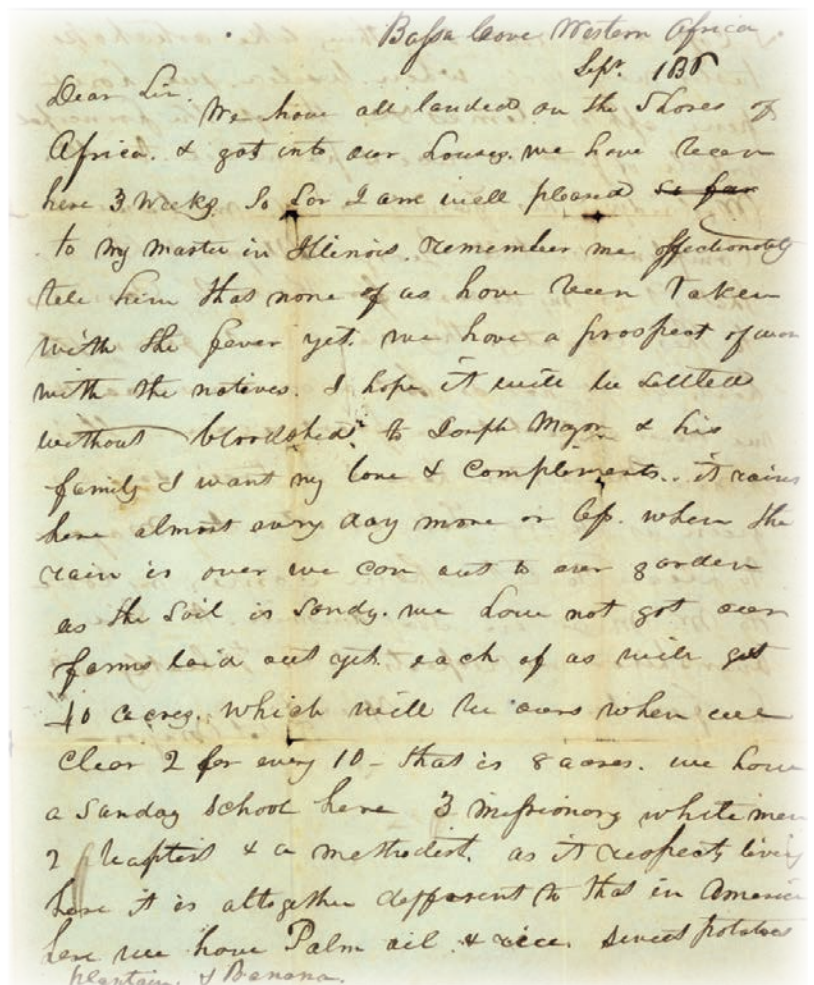 Bassa Cove Western Africa
Sepr. 183
Dear Sir.
We have all landed on the Shores of
Africa. & got into our houses. we have been
here 3 weeks. So for I am well pleased so far
to my master in Illinois. remember me affectionately
tell him that none of us have been taken
with the fever yet. we have a prospect of war
with the natives. I hope it will be settled
without bloodshed. to Joseph Major & his
family I want my love & compliments.. it rains
here almost every day more or less. when the
rain is over we can out to our garden
as the soil is sandy. we have not got our
farms laid out yet. each of us will get
40 acres. which will be ours when we
clear 2 for every 10 - that is 8 acres. we have
a Sunday school here 3 missionary white men
2 baptist & a methodist. as it respects living
here it is altogether different to that in America
here we have Palm oil. & rice. sweet potatoes
plantain, & Banana.